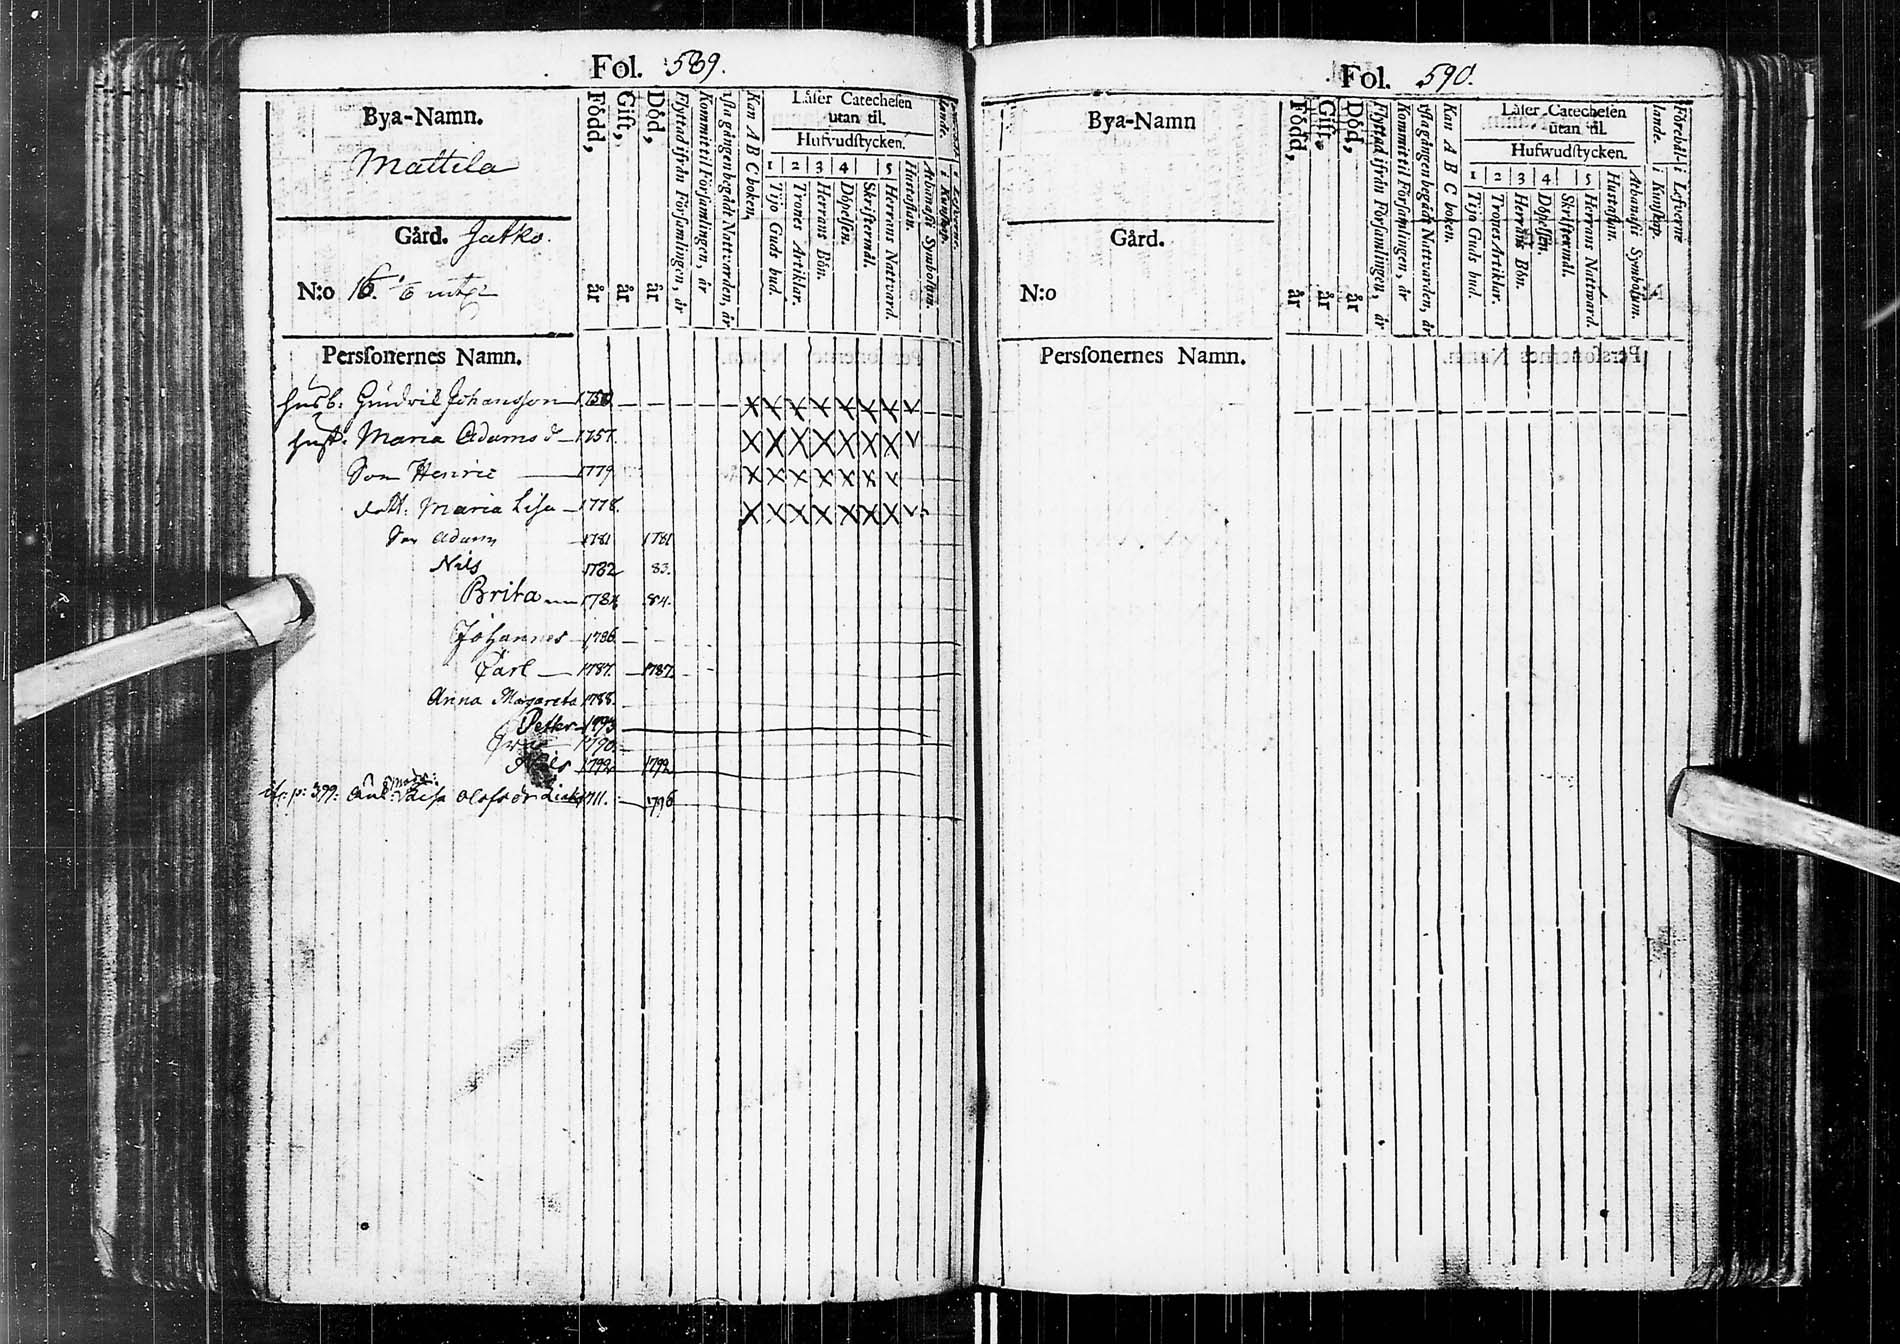 Fol. 589.
Bya-Namn.
Mattila
Gård. Jatko.
N:o 16.
Född, år
Gift, år
Död, år
Flyttad ifrån Församlingen, år
Kommit til Församlingen, år
1sta gången begådt Nattvarden, år
Kan A B C boken,
Låser Catechesen
utan til.
Hufvudstycken.
1 2 3 4 5
Tijo Guds bud.
Trones Artiklar.
Herrans Bön.
Döpelsen.
Skriftermål.
Herrans Natvard.
Hustaflan.
Athanasii Symbolum.
Personernes Namn.
husb: Johansson 1750
hust: Maria Adams d 1757.
Son Henric 1779
dott: Maria Lisa 1778.
Son Adam 1781 1781
Nils 1782 83.
Brita 1784 84.
Johannes 1786
Carl 1787. 1787.
Anna Margareta 1788.
Petter 1793
1790.
Nils 1792 1792
p: 399: Olofsdr 1711. 1796
Fol. 590.
Bya-Namn
Gård.
N:o
Född, år
Gift, år
Död, år
Flyttad ifrån Församlingen, år
Kommit til Församlingen, år
1sta gången begådt Nattvarden, år
Kan A B C boken.
Låser Catechesen
utan til.
Hufwudstycken.
1 2 3 4 5
Tijo Guds bud.
Trones Artiklar.
Herrans Bön.
Döpelsen.
Skriftermål.
Herrans Nattward.
Hustaflan.
Athanasii Symbolum.
Förehållande. i Kunskap.
i Lefwerne
Personernes Namn.